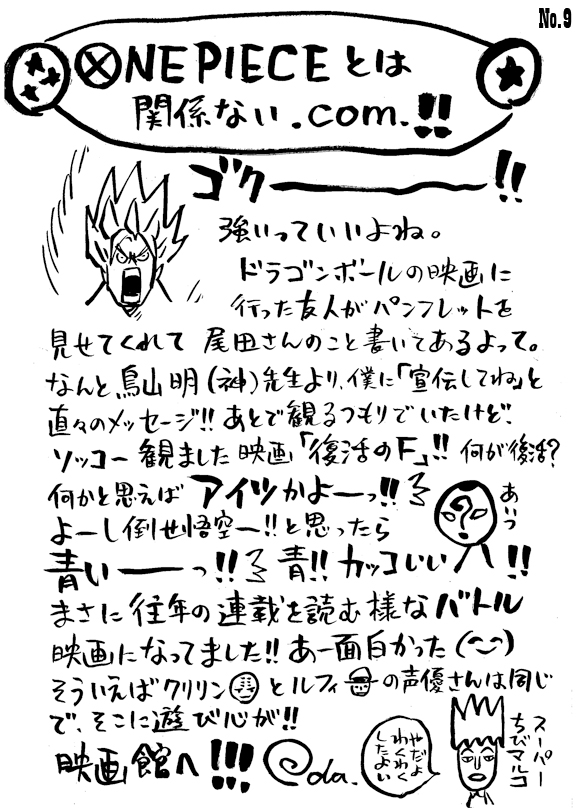 No.9
ONE PIECEとは
関係ない.com.!!
ゴクーーー!!
強いっていいよね。
ドラゴンボールの映画に
行った友人がパンフレットを
見せてくれて 尾田さんのこと書いてあるよって。
なんと鳥山明(神)先生より、僕に「宣伝してね」と
直々のメッセージ!! あとで観るつもりでいたけど、
ソッコー観ました 映画「復活のF」!! 何が復活?
何かと思えば アイツかよーっ!!
あいつ
よーし倒せ悟空ー!!と思ったら
青いーーっ!! 青!! カッコいい!!
まさに往年の連載を読む様なバトル
映画になってました!! あー面白かった(^~^)
そういえばクリリンとルフィの声優さんは同じ
で、そこに遊び心が!!
映画館へ!!! Oda.
やだよ
わくわく
したよい
スーパー
ちびマルコ